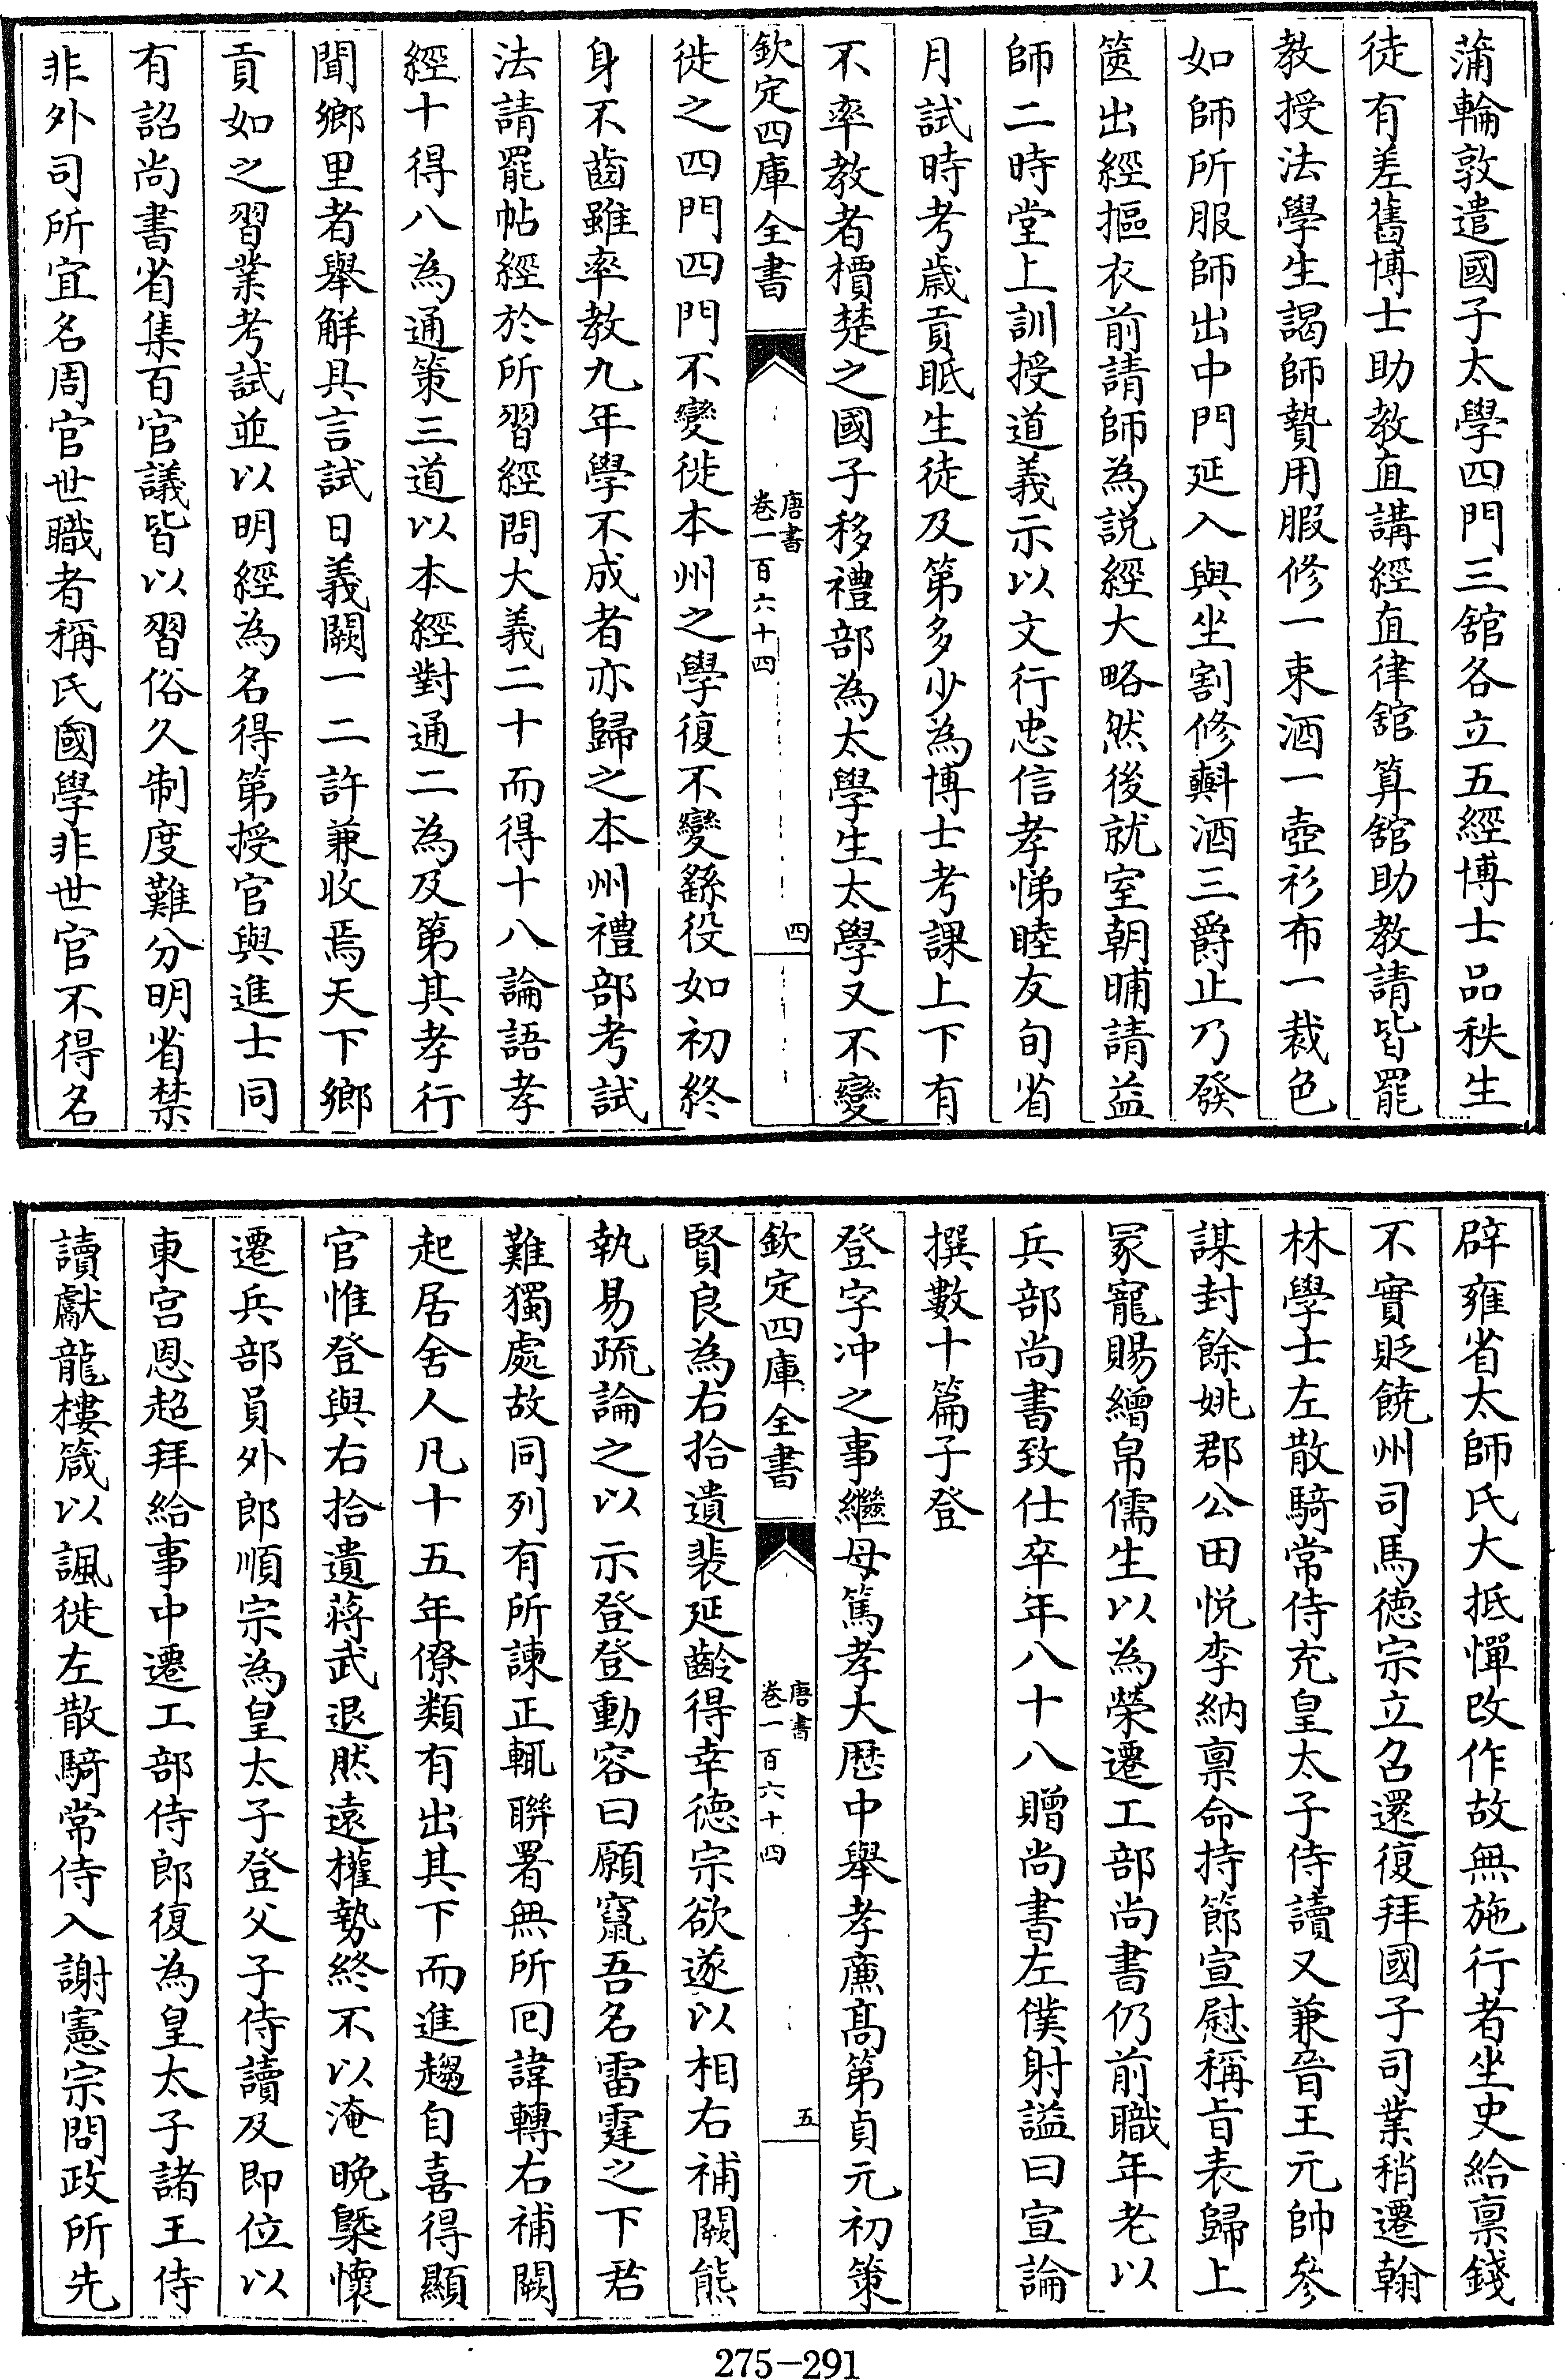 蒲輪敦遣國子太學四門三舘各立五經博士品秩生
徒有差舊博士助教直講經直律舘算舘助教請皆罷
教授法學生謁師贄用腶修一束酒一壺衫布一裁色
如師所服師出中門延入與坐割修斞酒三爵止乃發
篋出經摳衣前請師為說經大略然後就室朝晡請益
師二時堂上訓授道義示以文行忠信孝悌睦友旬省
月試時考歳貢眡生徒及第多少為博士考課上下有
不率教者檟楚之國子移禮部為太學生太學又不變
欽定四庫全書
唐書
卷一百六十四
四
徙之四門四門不變徙本州之學復不變繇役如初終
身不齒雖率教九年學不成者亦歸之本州禮部考試
法請罷帖經於所習經問大義二十而得十八論語孝
經十得八為通策三道以本經對通二為及第其孝行
聞鄉里者舉解具言試日義闕一二許兼收焉天下鄉
貢如之習業考試並以明經為名得第授官與進士同
有詔尚書省集百官議皆以習俗久制度難分明省禁
非外司所宜名周官世職者稱氏國學非世官不得名
辟雍省太師氏大抵憚改作故無施行者坐史給稟錢
不實貶饒州司馬德宗立召還復拜國子司業稍遷翰
林學士左散騎常侍充皇太子侍讀又兼晉王元帥參
謀封餘姚郡公田悅李納稟命持節宣慰稱旨表歸上
冢寵賜繒帛儒生以為榮遷工部尚書仍前職年老以
兵部尚書致仕卒年八十八贈尚書左僕射謚曰宣論
撰數十篇子登
登字冲之事繼母篤孝大厯中舉孝廉高第貞元初策
欽定四庫全書
唐書
卷一百六十四
五
賢良為右拾遺裴延齡得幸德宗欲遂以相右補闕熊
執易疏論之以示登登動容曰願竄吾名雷霆之下君
難獨處故同列有所諫正輒聯署無所回諱轉右補闕
起居舍人凡十五年僚類有出其下而進趨自喜得顯
官惟登與右拾遺蔣武退然遠權勢終不以淹晚槩懷
遷兵部員外郎順宗為皇太子登父子侍讀及即位以
東宮恩超拜給事中遷工部侍郎復為皇太子諸王侍
讀獻龍樓箴以諷徙左散騎常侍入謝憲宗問政所先
275-291